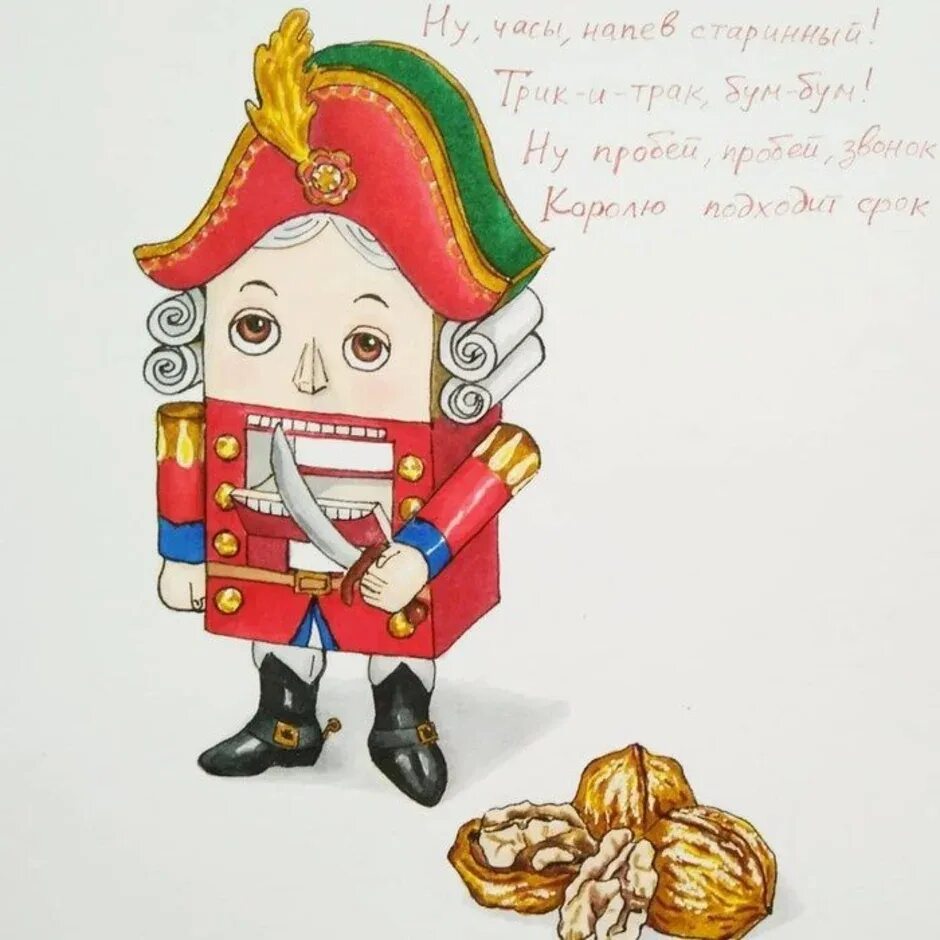 Ну, часы, напев старинный!
Трик-и-трак, бум-бум!
Ну пробей, пробей, звонок
Королю подходит срок